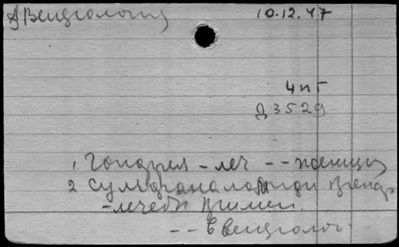 Венерология 10.12.47
4 п Г
Д3529
1 Гонорея - леч -- женщин
2 Сульфаниламиды венер
- лечебн примен.
-- в венеролог.